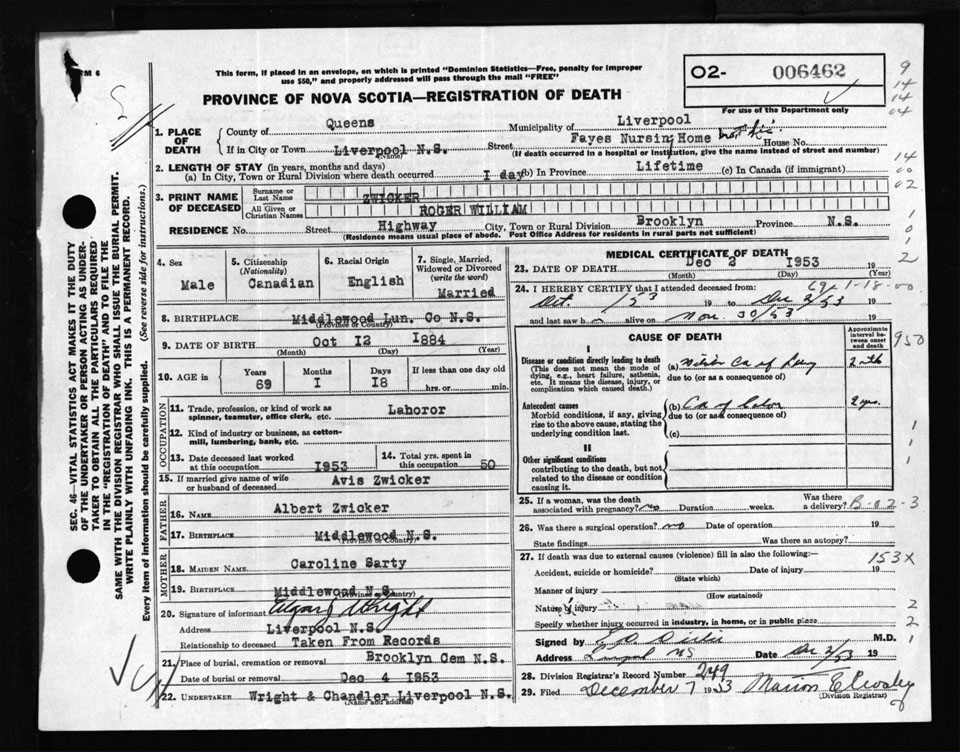 FORM 6
This form, if placed in an envelope, on which is printed "Dominion Statistics—Free, penalty for improper
use $50," and properly addressed will pass through the mail "FREE"
O2- 006462
PROVINCE OF NOVA SCOTIA—REGISTRATION OF DEATH
For use of the Department only
9
14
14
04
1. PLACE OF DEATH
County of Queens Municipality of Liverpool
If in City or Town Liverpool N.S. Street Fayes Nursing Home House No.
(Name) (If death occurred in a hospital or institution, give the name instead of street and number)
2. LENGTH OF STAY (in years, months and days)
(a) In City, Town or Rural Division where death occurred I day (b) In Province Lifetime (c) In Canada (if immigrant)
14
00
02
3. PRINT NAME OF DECEASED
Surname or Last Name ZWICKER
All Given or Christian Names ROGER WILLIAM
RESIDENCE No. Street Highway City, Town or Rural Division Brooklyn Province N.S.
(Residence means usual place of abode. Post Office Address for residents in rural parts not sufficient)
1
0
1
2
SEC. 46—VITAL STATISTICS ACT MAKES IT THE DUTY
OF THE UNDERTAKER OR PERSON ACTING AS UNDER-
TAKER TO OBTAIN ALL THE PARTICULARS REQUIRED
IN THE "REGISTRATION OF DEATH" AND TO FILE THE
SAME WITH THE DIVISION REGISTRAR WHO SHALL ISSUE THE BURIAL PERMIT.
WRITE PLAINLY WITH UNFADING INK. THIS IS A PERMANENT RECORD.
Every item of information should be carefully supplied. (See reverse side for instructions.)
4. Sex
Male
5. Citizenship
(Nationality)
Canadian
6. Racial Origin
English
7. Single, Married,
Widowed or Divorced
(write the word)
Married
8. BIRTHPLACE Middlewood Lun. Co N.S.
(Province or Country)
9. DATE OF BIRTH Oct I2 I884
(Month) (Day) (Year)
10. AGE in
Years Months Days If less than one day old
69 I I8 hrs. or min.
OCCUPATION
11. Trade, profession, or kind of work as
spinner, teamster, office clerk, etc. Laboror
12. Kind of industry or business, as cotton-
mill, lumbering, bank, etc.
13. Date deceased last worked
at this occupation I953
14. Total yrs. spent in
this occupation 50
15. If married give name of wife
or husband of deceased Avis Zwicker
FATHER
16. NAME Albert Zwicker
17. BIRTHPLACE Middlewood N.S.
(Province or Country)
MOTHER
18. MAIDEN NAME Caroline Sarty
19. BIRTHPLACE Middlewood N.S.
(Province or Country)
20. Signature of informant Wright
Address Liverpool N.S.
Relationship to deceased Taken From Records
21. Place of burial, cremation or removal Brooklyn Cem N.S.
Date of burial or removal Dec 4 I953
22. UNDERTAKER Wright & Chandler Liverpool N.S.
(Name and address)
MEDICAL CERTIFICATE OF DEATH
23. DATE OF DEATH Dec 2 I953 19
(Month) (Day) (Year)
24. I HEREBY CERTIFY that I attended deceased from: 69-1-18-00
Oct. 19 to Dec 2/53 19
and last saw h alive on Nov. 30/53 19
CAUSE OF DEATH
Approximate interval between onset and death
950
I
Disease or condition directly leading to death
(This does not mean the mode of
dying, e.g., heart failure, asthenia,
etc. It means the disease, injury, or
complication which caused death.)
(a) Ca of 2 mths
due to (or as a consequence of)
Antecedent causes
Morbid conditions, if any, giving
rise to the above cause, stating the
underlying condition last.
(b) Ca of 2 yrs.
due to (or as a consequence of)
(c)
1
II
Other significant conditions
contributing to the death, but not
related to the disease or condition
causing it.
1
25. If a woman, was the death
associated with pregnancy? no Duration weeks. Was there
a delivery? B-02-3
26. Was there a surgical operation? no Date of operation 19
State findings Was there an autopsy?
27. If death was due to external causes (violence) fill in also the following: 153X
Accident, suicide or homicide? Date of injury 19
(State which)
Manner of injury
(How sustained)
Nature of injury 2
Specify whether injury occurred in industry, in home, or in public place 2
Signed by M.D. 1
Address Liverpool NS Date Dec 2/53 19
28. Division Registrar's Record Number 249
29. Filed December 7 1953 Marion
(Division Registrar)